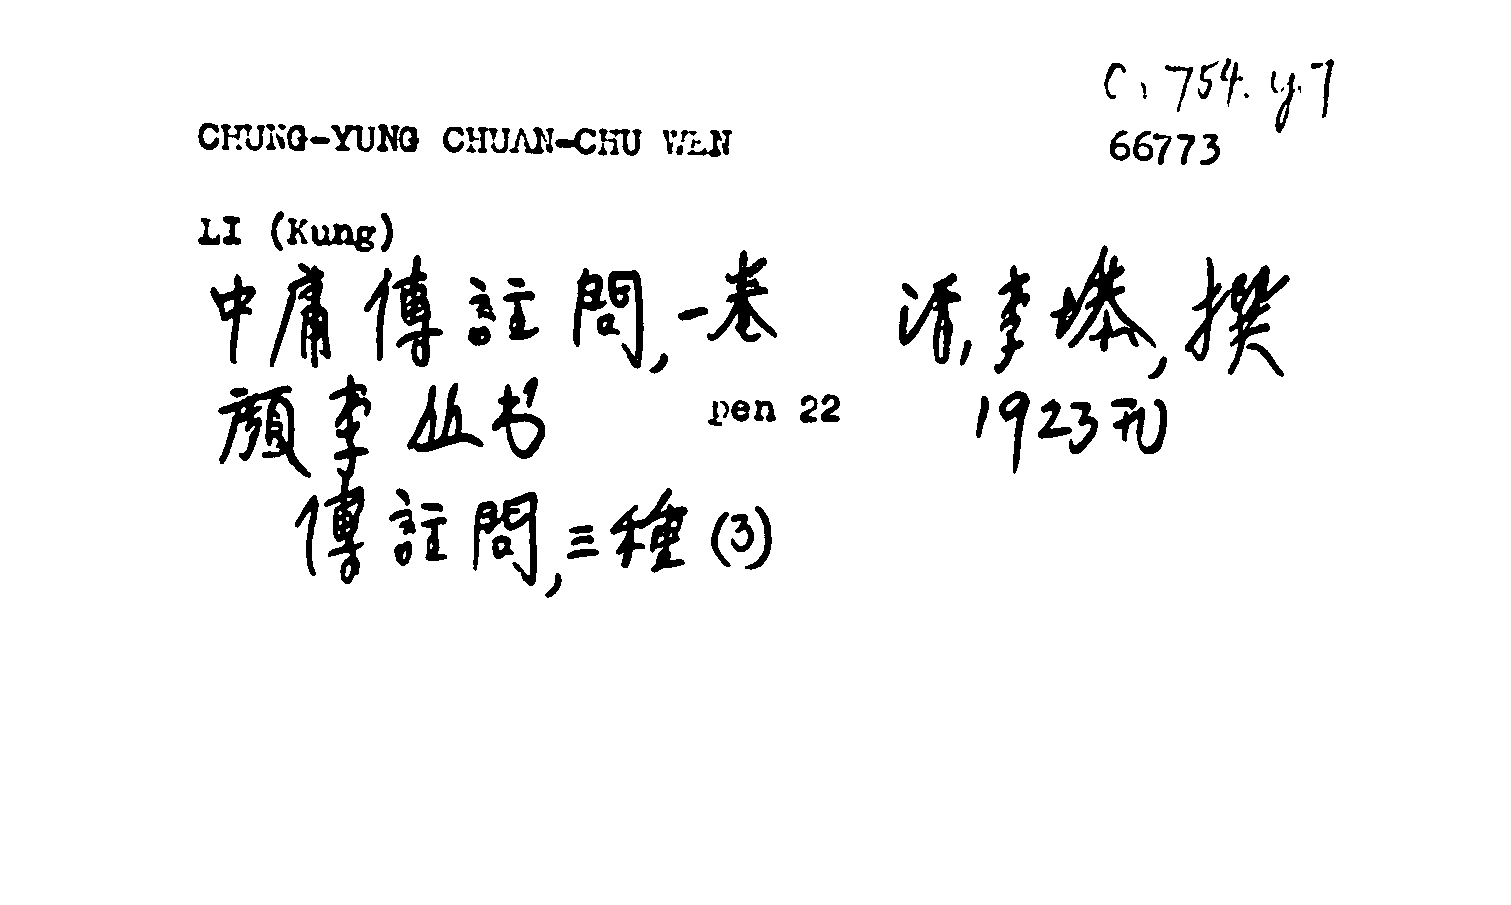 C. 754. y. 7
CHUNG-YUNG CHUAN-CHU WEN
66773
LI (Kung)
中庸傳註問,一卷 清,李塨,撰
顔李丛书 pen 22 1923刊
傳註問,三種(3)